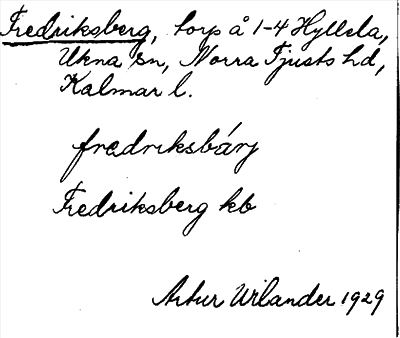 Fredriksberg, torp å 1-4 Hyllela,
Ukna sn, Norra Tjusts hd,
Kalmar l.
fredriksbärj
Fredriksberg kb
Artur Wilander 1929